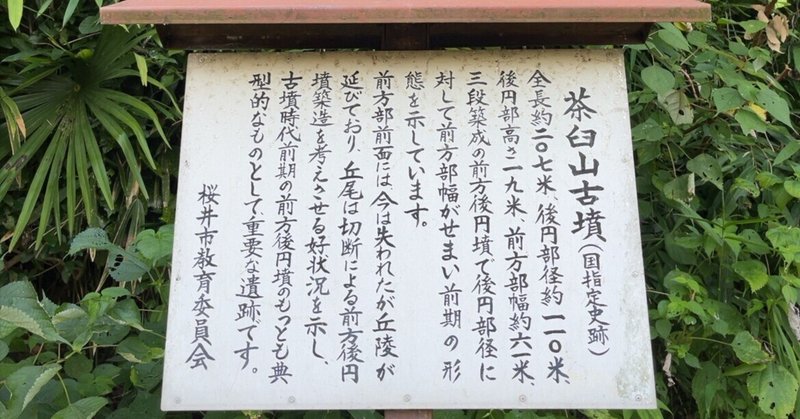 茶臼山古墳(国指定史跡)
全長約二〇七米、後円部径約一一〇米、
後円部高さ一九米、前方部幅約六一米、
三段築成の前方後円墳で後円部径に
対して前方部幅がせまい前期の形
態を示しています。
前方部前面には、今は失われたが丘陵が
延びており、丘尾は切断による前方後円
墳築造を考えさせる好状況を示し、
古墳時代前期の前方後円墳のもっとも典
型的なものとして、重要な遺跡です。
桜井市教育委員会